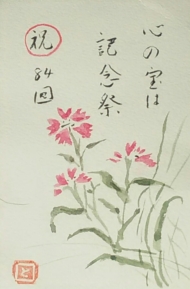 心の宝は
記念祭
祝
84回
と